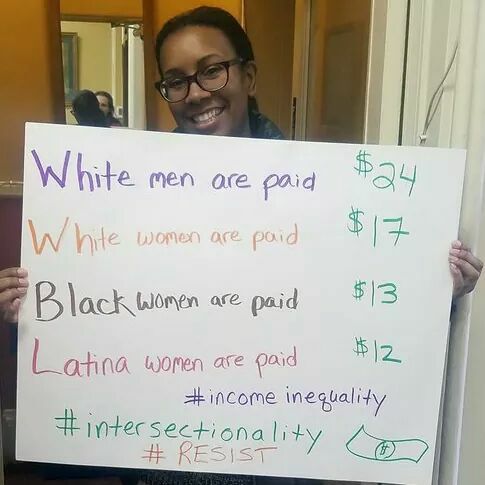 White men are paid $24
White women are paid $17
Black women are paid $13
Latina women are paid $12
#income inequality
#intersectionality
# RESIST